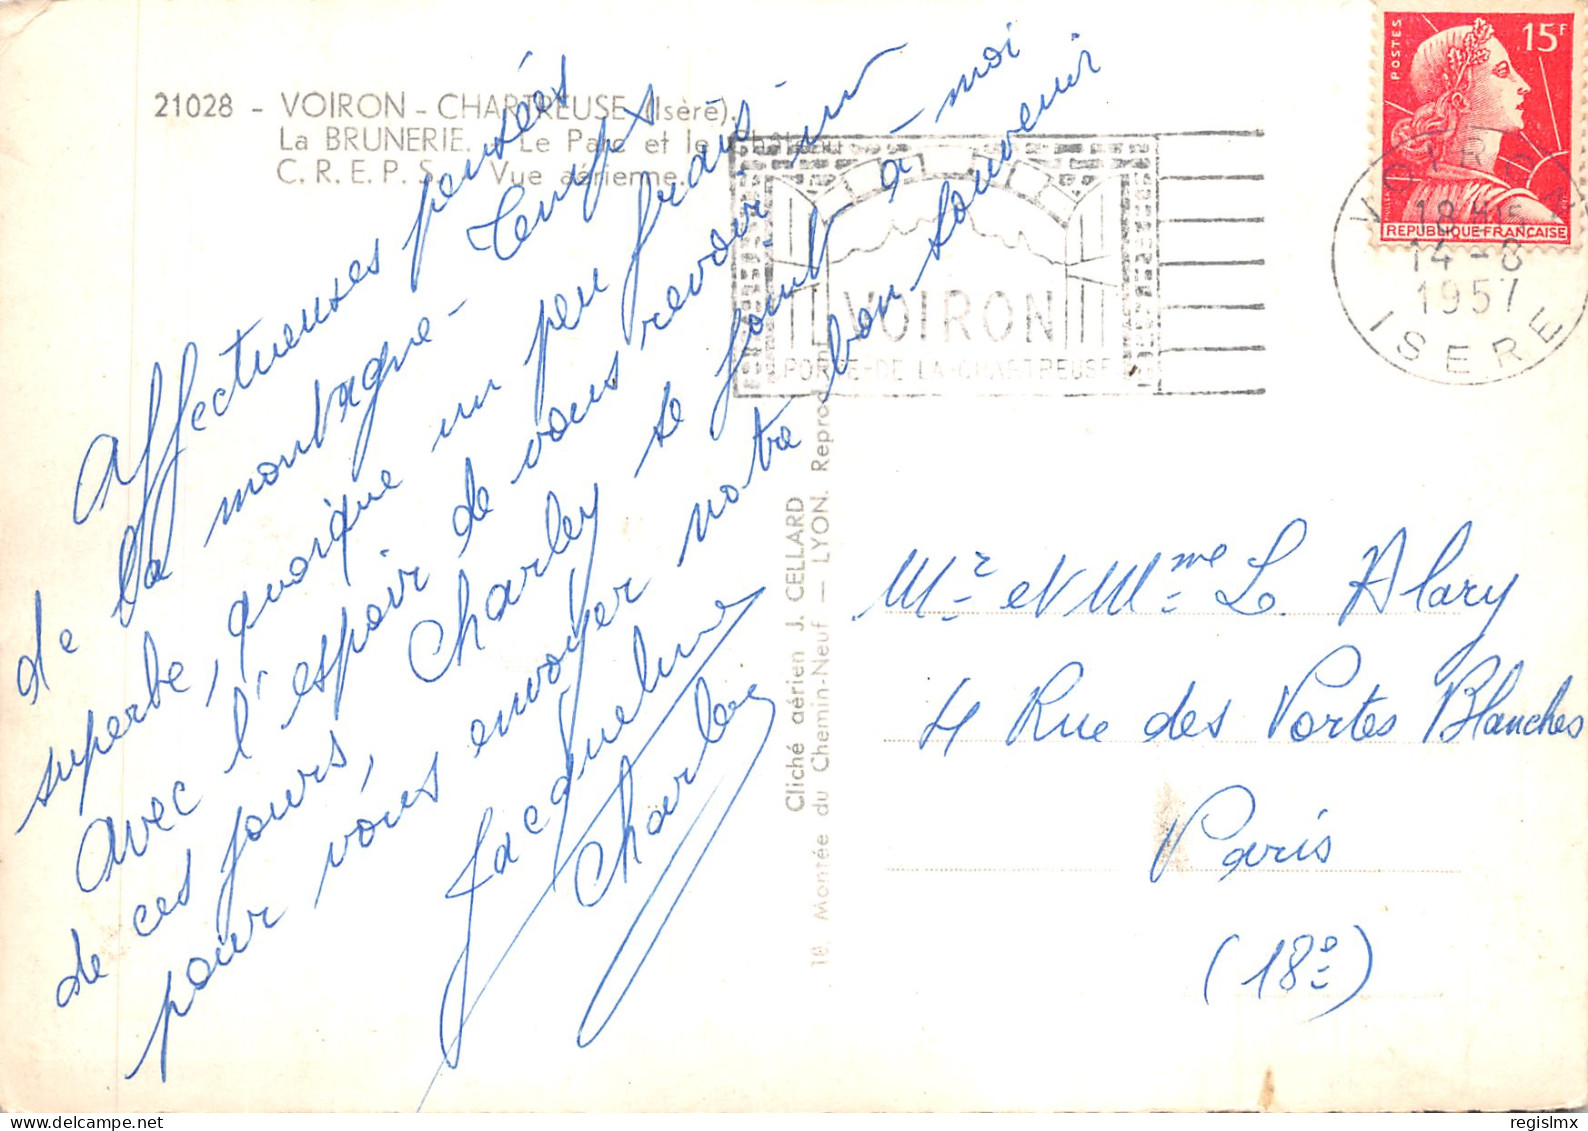 21028 - VOIRON - CHARTREUSE (Isère).
La BRUNERIE. - Le Parc et le Château
C. R. E. P. S. - Vue aérienne.
Affectueuses pensées
de la montagne - Temps
superbe, quoique un peu frais -
Avec l'espoir de vous revoir un
de ces jours, Charley se joint à-moi
pour vous envoyer notre bon souvenir
Jacqueline
Charley
Cliché aérien J. CELLARD
18, Montée du Chemin-Neuf — LYON. Reprod. int.
VOIRON
PORTE-DE LA-CHARTREUSE
POSTES
15F
REPUBLIQUE FRANÇAISE
VOIRON
18H15
14-8
1957
ISERE
Mr et Mme L. Alary
4 Rue des Portes Blanches
Paris
(18e)
regislmx